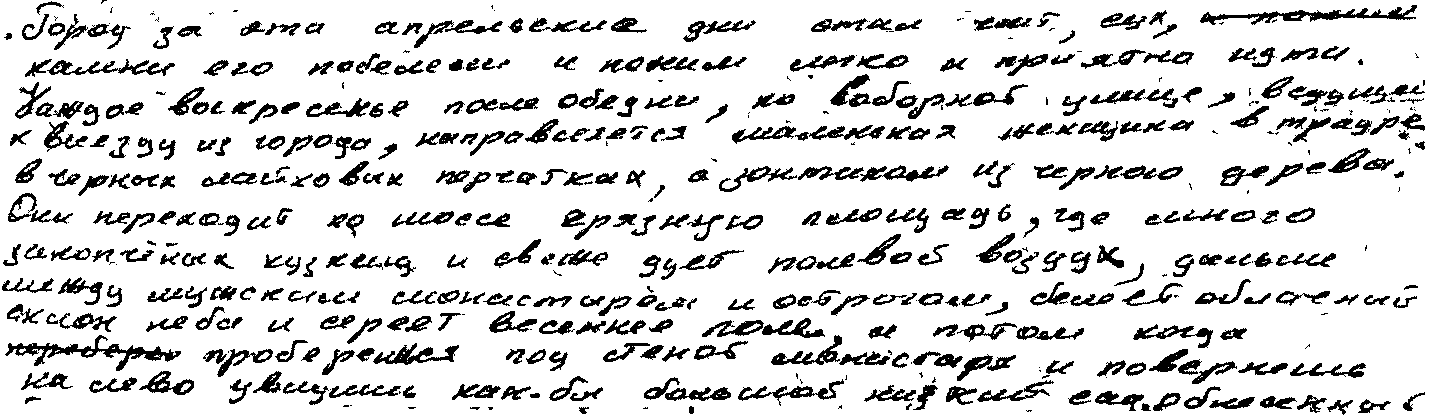 . Город за эти апрельские дни стал чист, сух, и по ним
камни его побелели и по ним легко и приятно идти.
Каждое воскресенье после обедни, по Соборной улице, ведущей
к выезду из города, направляется маленькая женщина в трауре
в черных лайковых перчатках, с зонтиком из черного дерева.
Она переходит по шоссе грязную площадь, где много
закопчённых кузниц и свеже дует полевой воздух, дальше
между мужским монастырём и острогом, белеет облачный
склон неба и сереет весеннее поле, и потом когда
проберешься под стеной монастыря и повернешь
на лево увидишь как-бы большой низкий сад, обнесенный